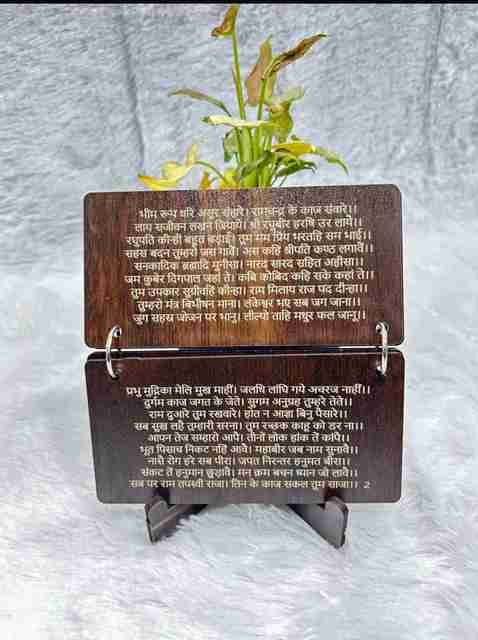 भीम रूप धरि असुर संहारे। रामचन्द्र के काज संवारे।।
लाय सजीवन लखन जियाये। श्री रघुबीर हरषि उर लाये।।
रघुपति कीन्ही बहुत बड़ाई। तुम मम प्रिय भरतहि सम भाई।।
सहस बदन तुम्हरो जस गावैं। अस कहि श्रीपति कण्ठ लगावैं।।
सनकादिक ब्रह्मादि मुनीसा। नारद सारद सहित अहीसा।।
जम कुबेर दिगपाल जहां ते। कबि कोबिद कहि सके कहां ते।।
तुम उपकार सुग्रीवहिं कीन्हा। राम मिलाय राज पद दीन्हा।।
तुम्हरो मंत्र बिभीषन माना। लंकेश्वर भए सब जग जाना।।
जुग सहस्र जोजन पर भानु। लील्यो ताहि मधुर फल जानू।।
प्रभु मुद्रिका मेलि मुख माहीं। जलधि लांघि गये अचरज नाहीं।।
दुर्गम काज जगत के जेते। सुगम अनुग्रह तुम्हरे तेते।।
राम दुआरे तुम रखवारे। होत न आज्ञा बिनु पैसारे।।
सब सुख लहै तुम्हारी सरना। तुम रच्छक काहू को डर ना।।
आपन तेज सम्हारो आपै। तीनों लोक हांक तें कांपै।।
भूत पिसाच निकट नहिं आवै। महाबीर जब नाम सुनावै।।
नासै रोग हरे सब पीरा। जपत निरन्तर हनुमत बीरा।।
संकट तें हनुमान छुड़ावै। मन क्रम बचन ध्यान जो लावै।।
सब पर राम तपस्वी राजा। तिन के काज सकल तुम साजा।। 2